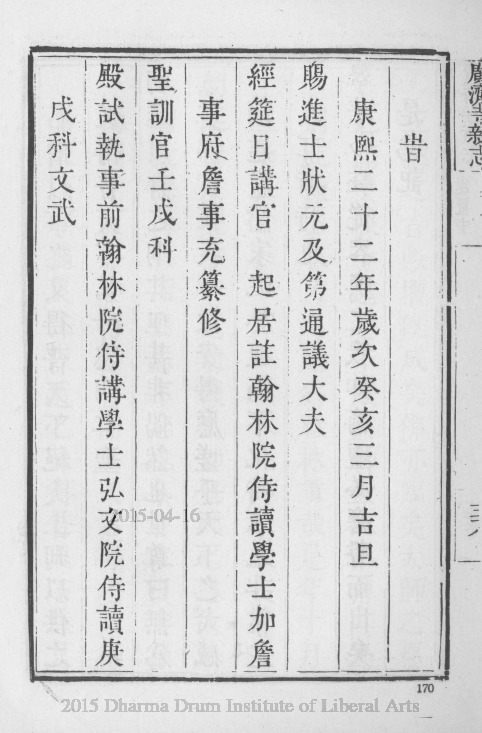 旹
康熙二十二年歲次癸亥三月吉旦
賜進士狀元及第通議大夫
經筵日講官　起居註翰林院侍讀學士加詹
事府詹事充纂修
聖訓官壬戌科
殿試執事前翰林院侍講學士弘文院侍讀庚
戌科文武
170
2015-04-16
2015 Dharma Drum Institute of Liberal Arts